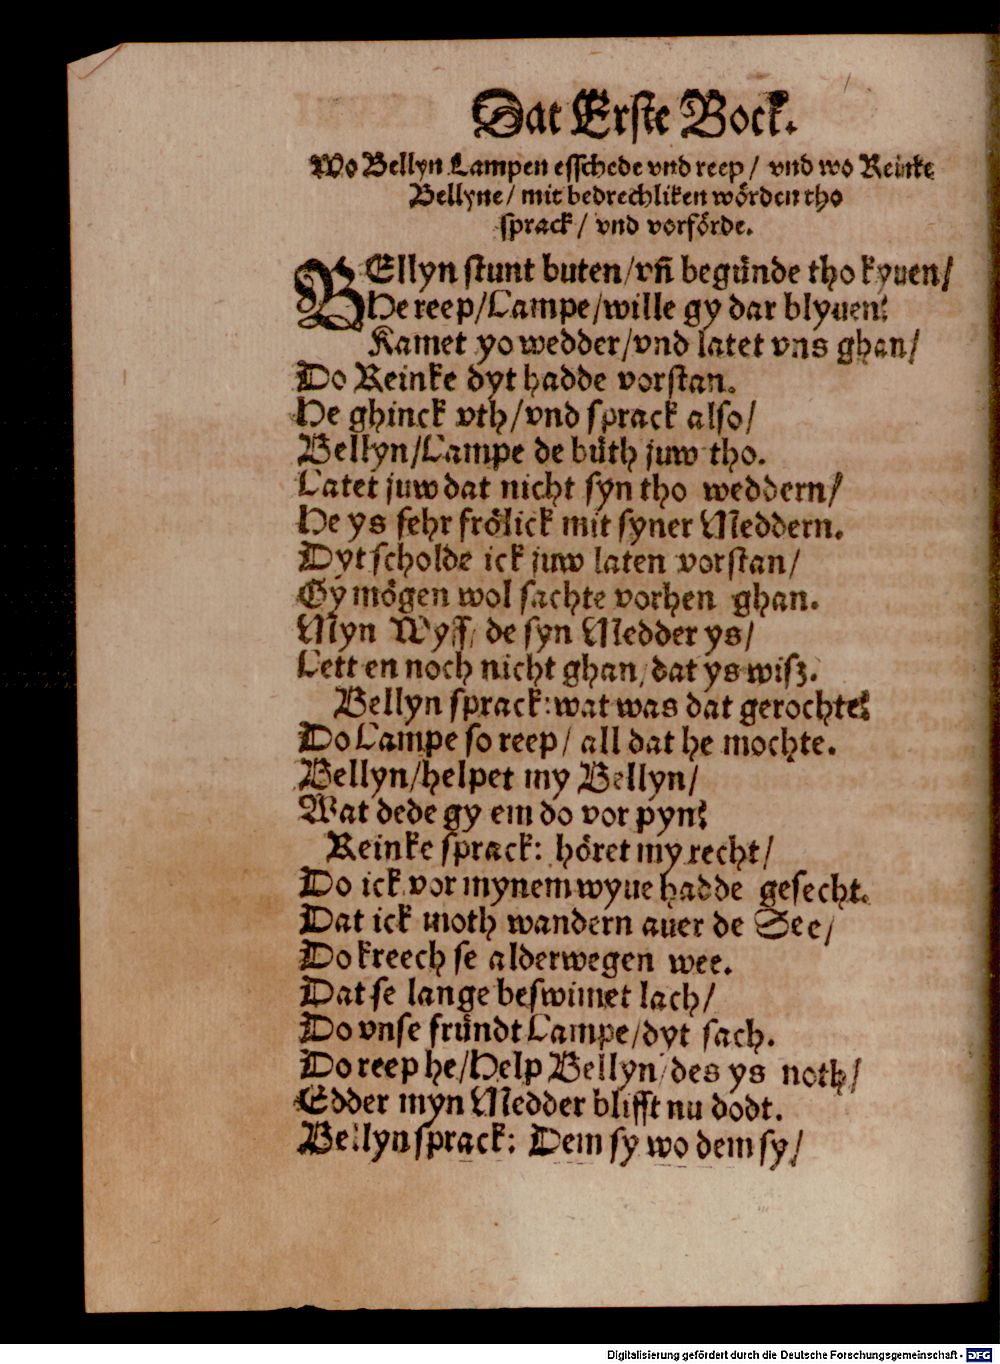 Dat Erste Bock.
Wo Bellyn Lampen esschede vnd reep / vnd wo Reinke
Bellyne / mit bedrechliken wörden tho
sprack / vnd vorförde.
BEllyn stunt buten / vñ begünde tho kyuen /
He reep / Lampe / wille gy dar blyuen?
Kamet yo wedder / vnd latet vns ghan /
Do Reinke dyt hadde vorstan.
He ghinck vth / vnd sprack also /
Bellyn / Lampe de büth juw tho.
Latet juw dat nicht syn tho weddern /
He ys sehr frölick mit syner Meddern.
Dyt scholde ick juw laten vorstan /
Gy mögen wol sachte vorhen ghan.
Myn Wyff / de syn Medder ys /
Lett en noch nicht ghan / dat ys wisz.
Bellyn sprack: wat was dat gerochte?
Do Lampe so reep / all dat he mochte.
Bellyn / helpet my Bellyn /
Wat dede gy em do vor pyn?
Reinke sprack: höret my recht /
Do ick vor mynem wyue hadde gesecht.
Dat ick moth wandern auer de See /
Do kreech se alderwegen wee.
Dat se lange beswimet lach /
Do vnse fründt Lampe / dyt sach.
Do reep he / Help Bellyn / des ys noth /
Edder myn Medder blifft nu dodt.
Bellyn sprack: Dem sy wo dem sy /
Digitalisierung gefördert durch die Deutsche Forschungsgemeinschaft - DFG